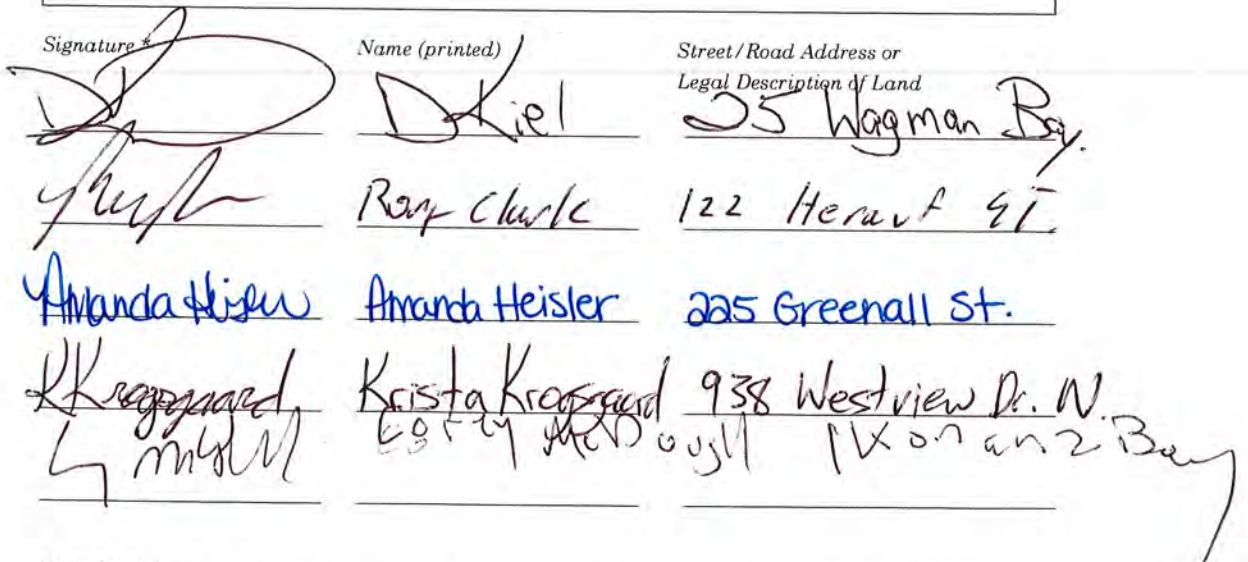 Signature *
Name (printed)
Street/Road Address or
Legal Description of Land
D Kiel
25 Wagman Bay.
Clark
122 Herauf ST.
Amanda Heisler
Amanda Heisler
225 Greenall St.
K Krogsgaard
Krista Krogsgaard
938 Westview Dr. N.
Bay